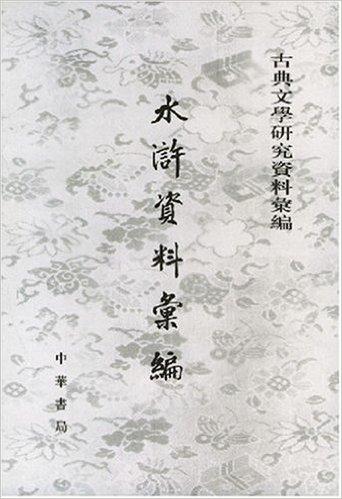 古典文學研究資料彙編
水滸資料彙編
中華書局